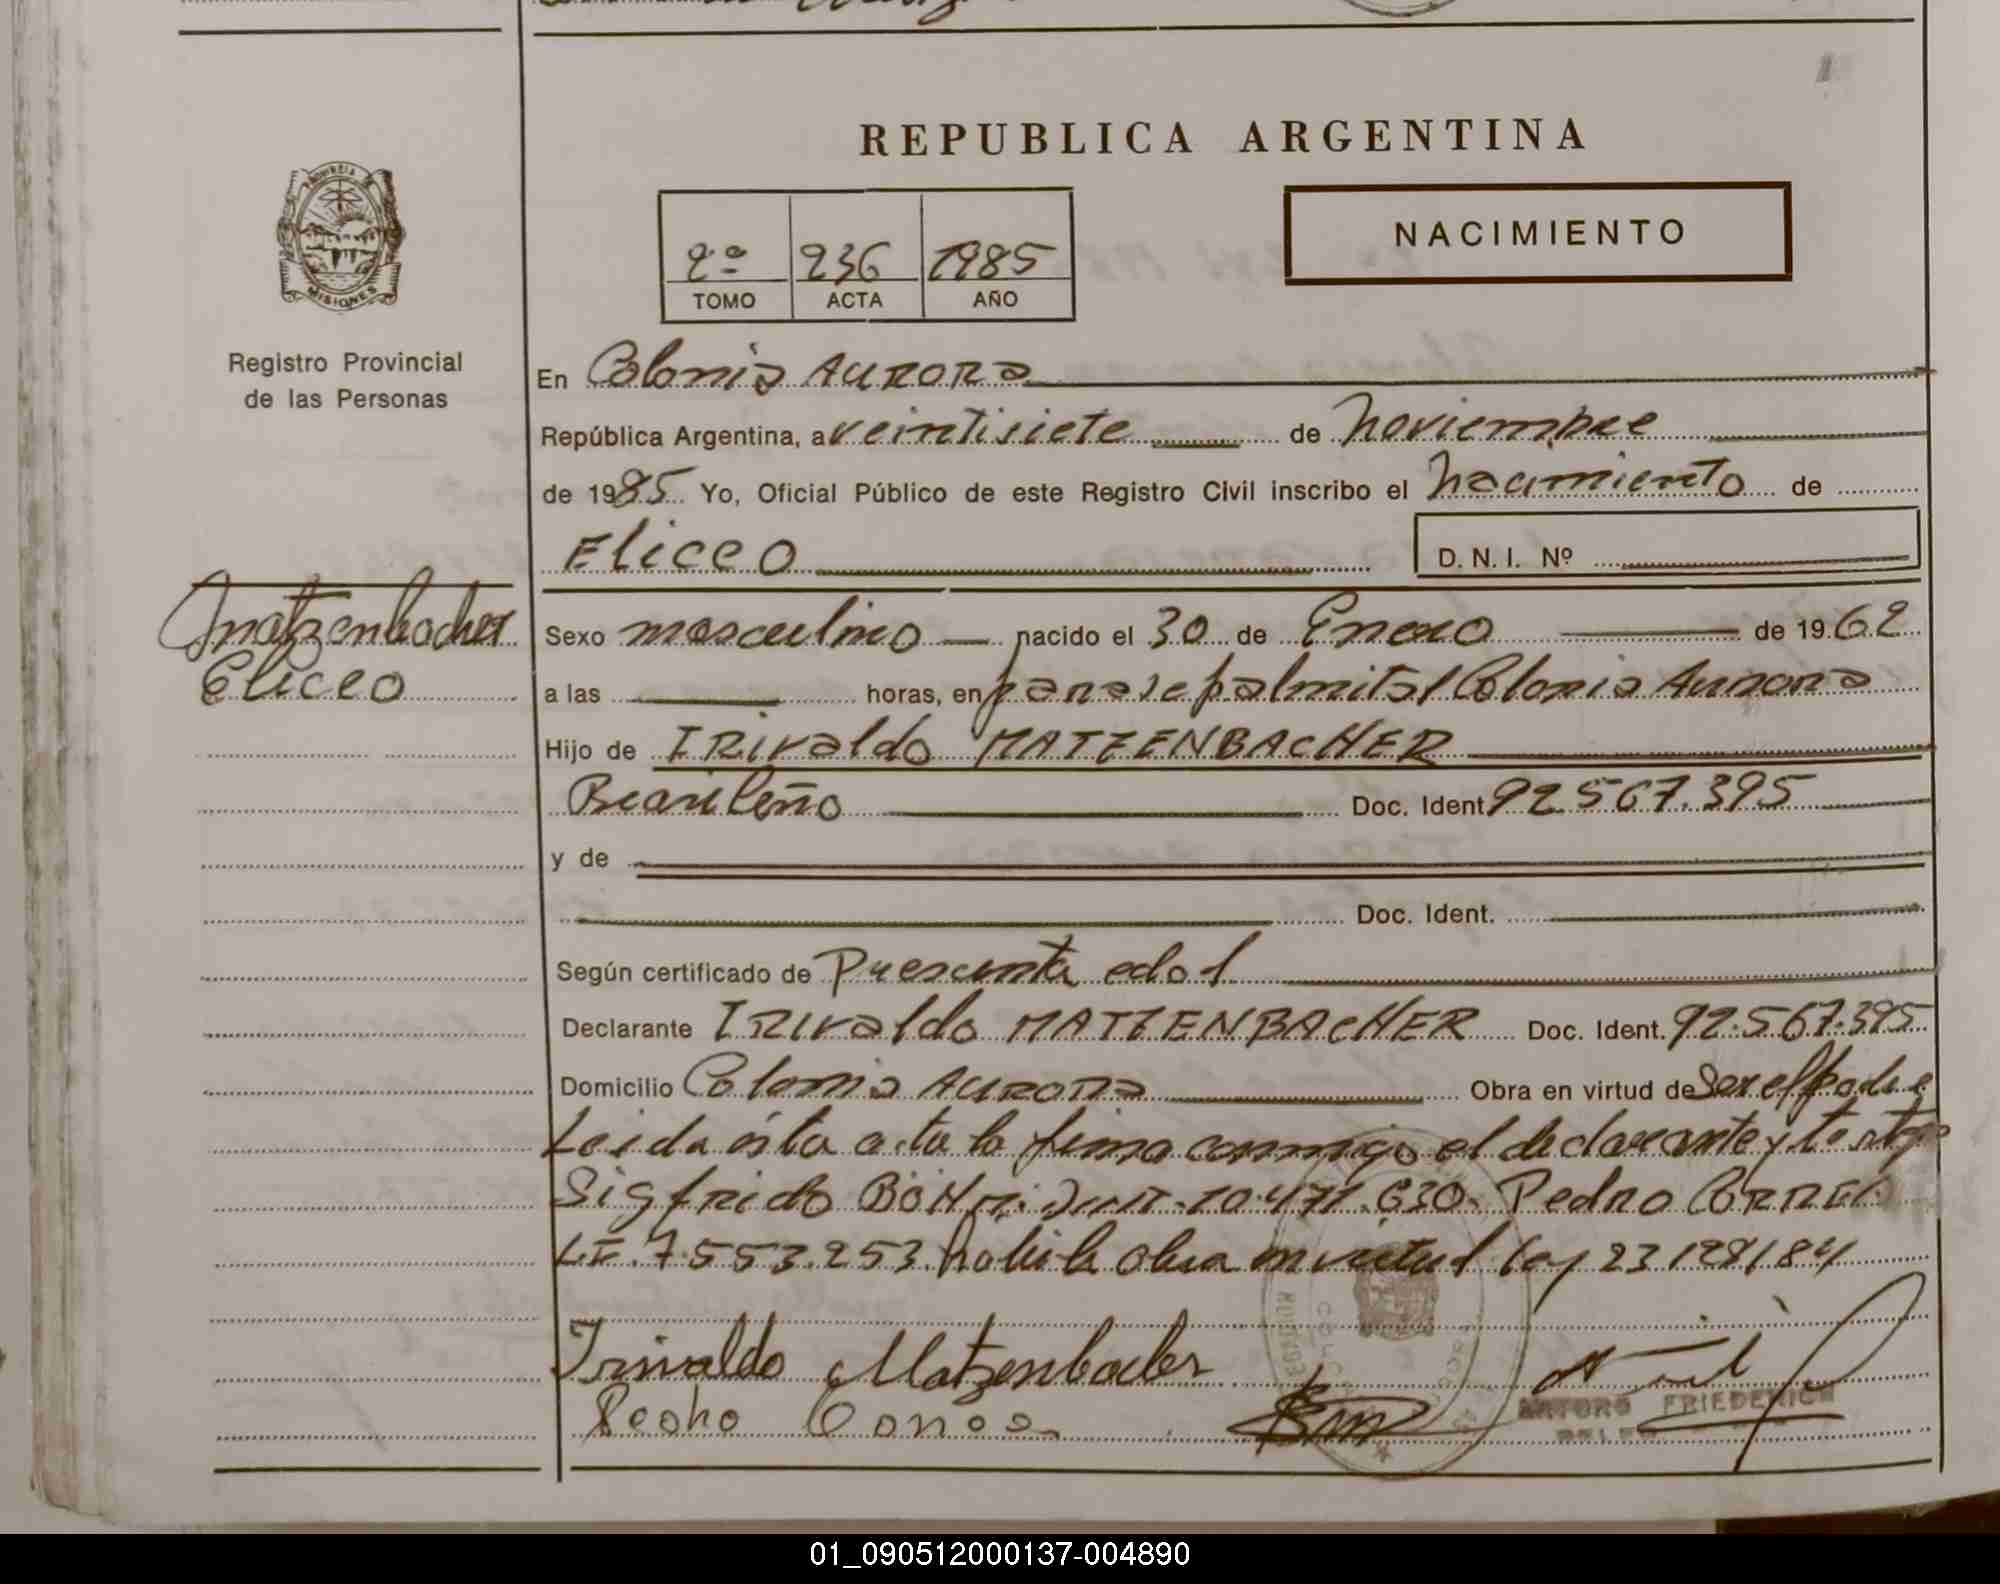 REPUBLICA ARGENTINA
NACIMIENTO
2º 236 1985
TOMO ACTA AÑO
PROVINCIA DE MISIONES
Registro Provincial
de las Personas
En Colonia AURORA
República Argentina, a veintisiete de Noviembre
de 1985 Yo, Oficial Público de este Registro Civil inscribo el Nacimiento de
Eliceo D. N. I. Nº
Matzenbacher
Eliceo
Sexo masculino nacido el 30 de Enero de 1962
a las horas, en paraje palmital Colonia Aurora
Hijo de IRIValdo MATZENBACHER
Brasileño Doc. Ident 92.567.395
y de
Doc. Ident.
Según certificado de Presunta edad
Declarante IRIValdo MATZENBACHER Doc. Ident. 92.567.395
Domicilio Colonia AURORA Obra en virtud de Ser el Padre
Leida ésta acta la firma conmigo el declarante y testigo
Sigfrido BÖHM: 10.471.630. Pedro
LE. 7.553.253. Obra en virtud ley 23128/84
Irivaldo Matzenbacher
Pedro
ARTURO FRIEDERICH
01_090512000137-004890